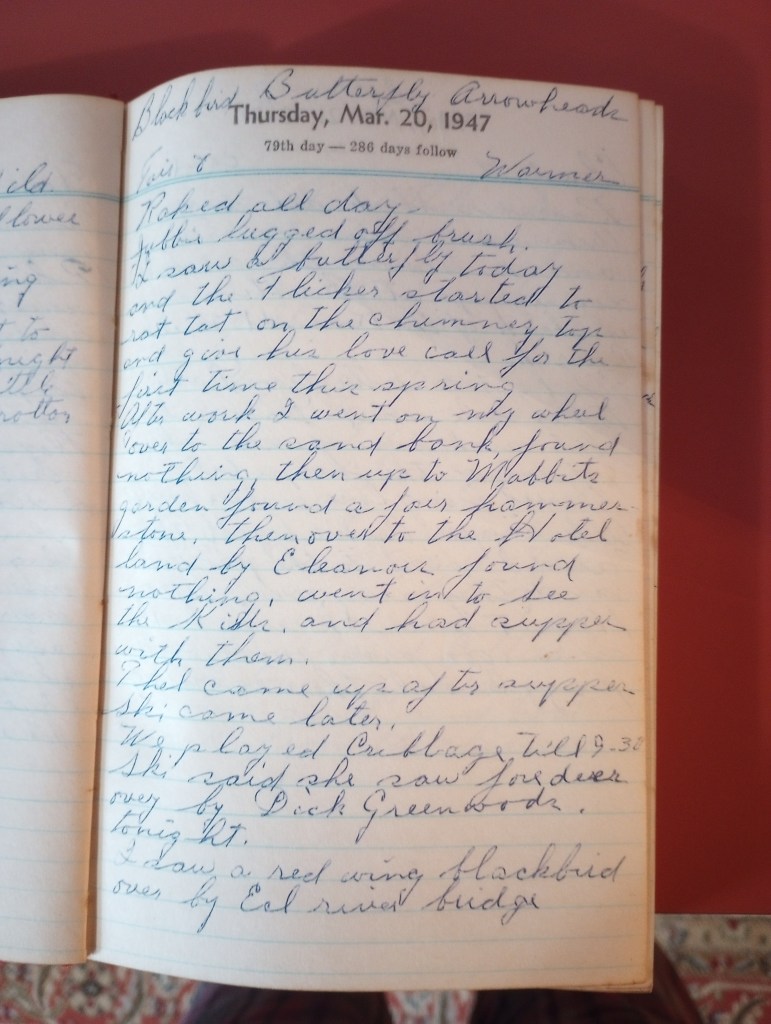 Blackbird Butterfly Arrowheads
Thursday, Mar. 20, 1947
79th day — 286 days follow
Fair & Warmer
Raked all day.
lugged off brush.
I saw a butterfly today
and the Flicker started to
rat tat on the chimney top
and give his love call for the
first time this spring
After work I went on my wheel
over to the sand bank, found
nothing, then up to Mabbits
garden found a fair hammer
stone. then over to the Hotel
land by Eleanors found
nothing, went in to see
the Kids. and had supper
with them.
Phel came up after supper
Ski came later.
We played Cribbage till 9-30
Ski said she saw deer
over by Dick Greenwoods.
tonight.
I saw a red wing blackbird
over by Eel river bridge
ild
lower
ing
t to
night